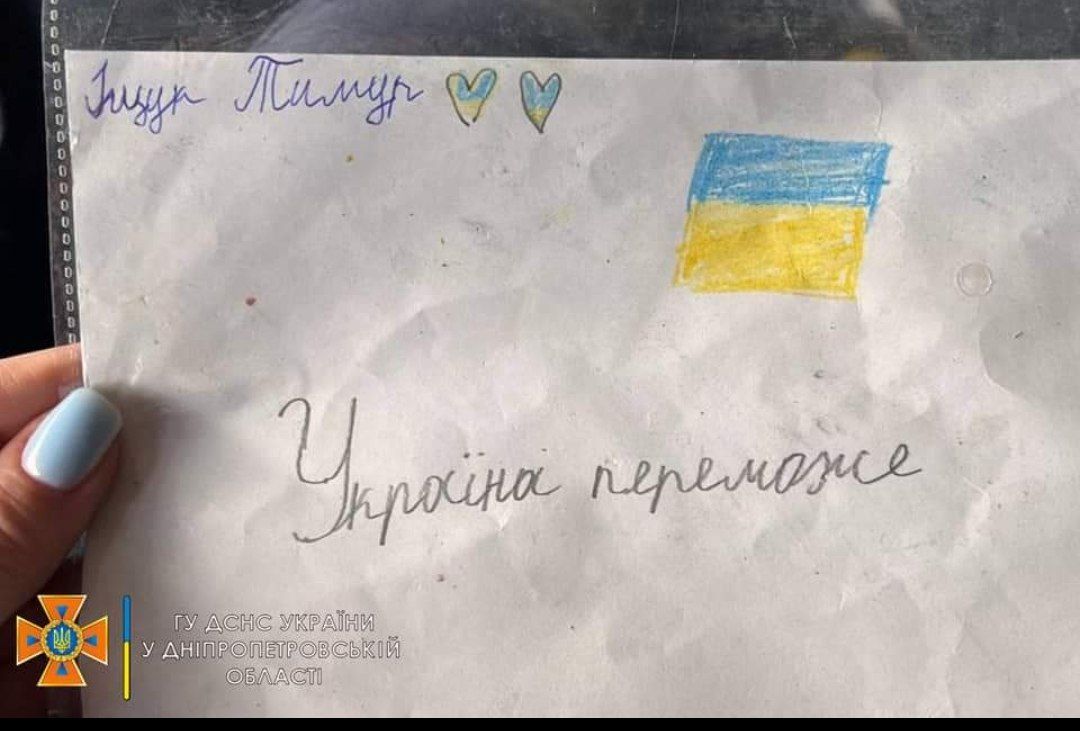 Іщук Тимур
Україна переможе
ГУ ДСНС УКРАЇНИ
У ДНІПРОПЕТРОВСЬКІЙ
ОБЛАСТІ